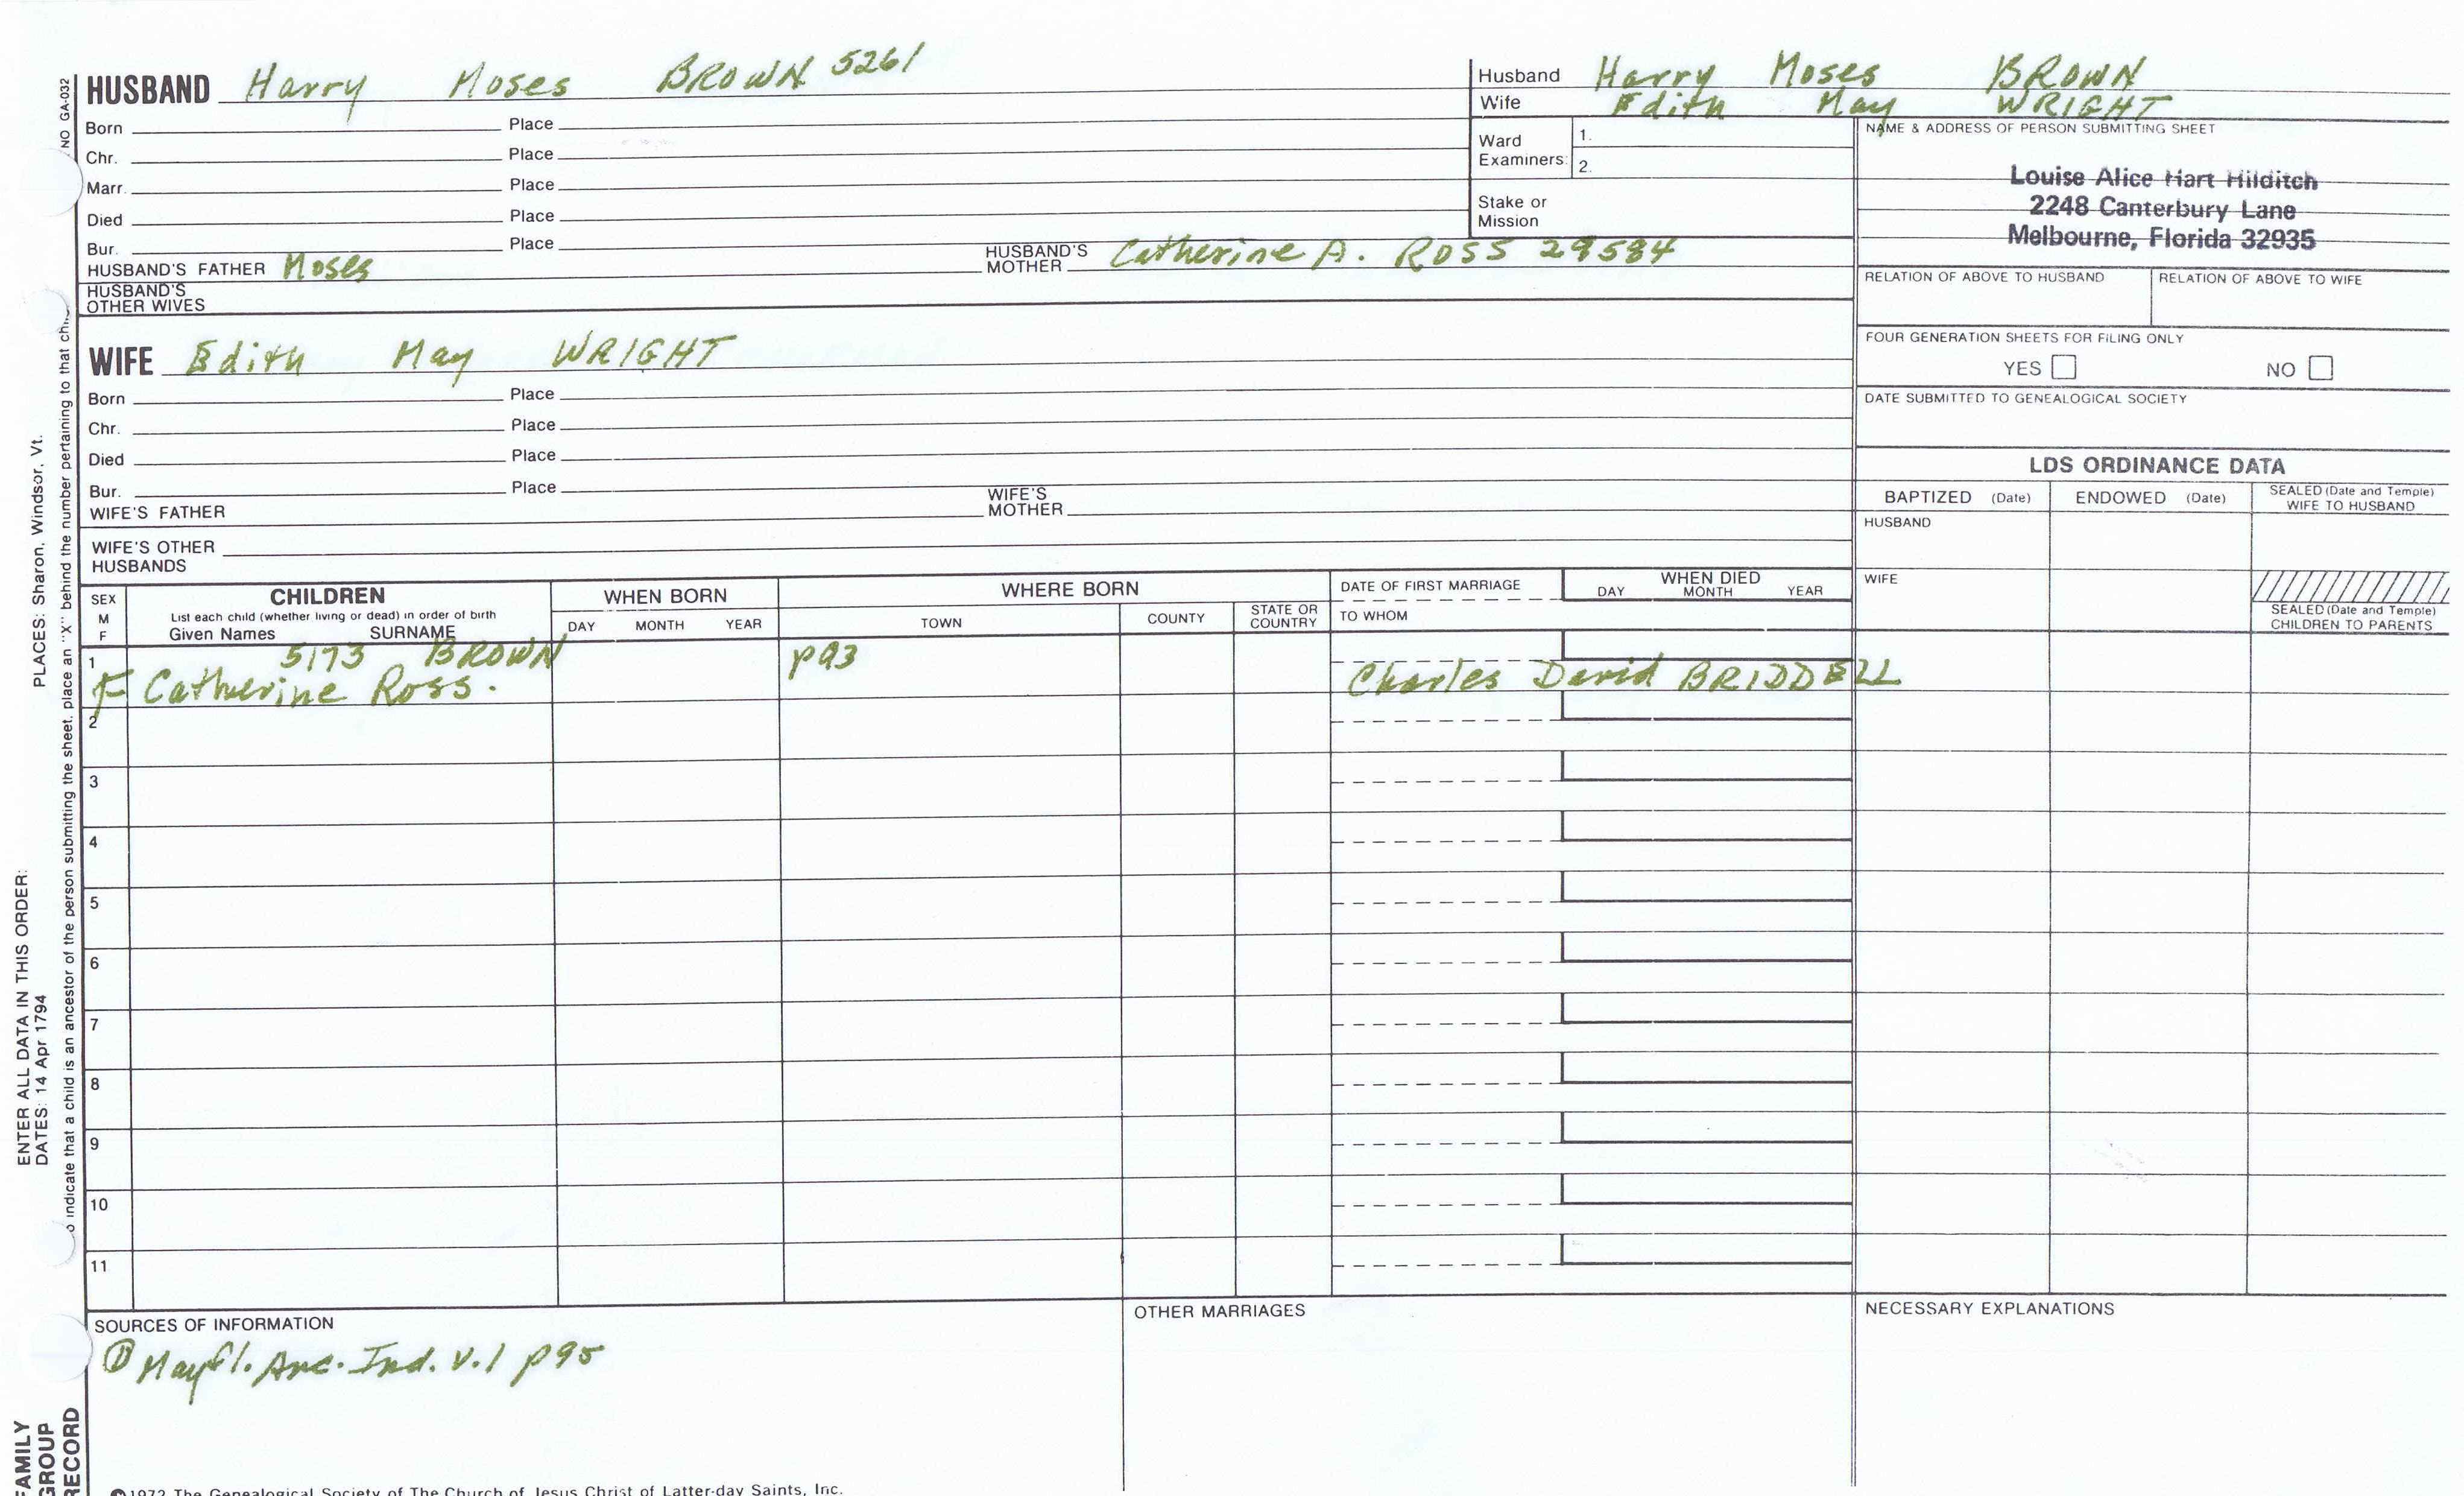 NO GA-032
HUSBAND Harry Moses BROWN 5261
Born Place
Chr. Place
Marr. Place
Died Place
Bur. Place
HUSBAND'S FATHER Moses
HUSBAND'S MOTHER Catherine A. ROSS 29584
HUSBAND'S OTHER WIVES
WIFE Edith May WRIGHT
Born Place
Chr. Place
Died Place
Bur. Place
WIFE'S FATHER
WIFE'S MOTHER
WIFE'S OTHER HUSBANDS
Husband Harry Moses BROWN
Wife Edith May WRIGHT
Ward Examiners: 1.
2.
Stake or Mission
NAME & ADDRESS OF PERSON SUBMITTING SHEET
Louise Alice Hart Hilditch
2248 Canterbury Lane
Melbourne, Florida 32935
RELATION OF ABOVE TO HUSBAND
RELATION OF ABOVE TO WIFE
FOUR GENERATION SHEETS FOR FILING ONLY
YES NO
DATE SUBMITTED TO GENEALOGICAL SOCIETY
LDS ORDINANCE DATA
BAPTIZED (Date)
ENDOWED (Date)
SEALED (Date and Temple) WIFE TO HUSBAND
HUSBAND
WIFE
SEALED (Date and Temple) CHILDREN TO PARENTS
SEX M F
CHILDREN
List each child (whether living or dead) in order of birth
Given Names SURNAME
WHEN BORN
DAY MONTH YEAR
WHERE BORN
TOWN COUNTY STATE OR COUNTRY
DATE OF FIRST MARRIAGE
TO WHOM
WHEN DIED
DAY MONTH YEAR
1 5173 BROWN p93
F Catherine Ross. Charles David BRIDDELL
2
3
4
5
6
7
8
9
10
11
SOURCES OF INFORMATION
① Mayfl. Anc. Ind. v.1 p95
OTHER MARRIAGES
NECESSARY EXPLANATIONS
©1972 The Genealogical Society of The Church of Jesus Christ of Latter-day Saints, Inc.
ENTER ALL DATA IN THIS ORDER:
DATES: 14 Apr 1794
PLACES: Sharon, Windsor, Vt.
indicate that a child is an ancestor of the person submitting the sheet, place an "X" behind the number pertaining to that
FAMILY
GROUP
RECORD